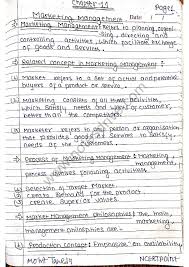 Chapter-11
Page 1
Marketing Management
Date
Marketing Management: Refers to planning, organi
-sing, directing and
controlling activities which facilitate exchange
of goods and service.
Related concept in Marketing Management:
Market refers to a set of actual and potential
buyers of a product or service.
Marketing consists of all those activities,
which satisfy needs and want of customer,
better than the competitors.
Marketer refers to any person or organisation
that provides goods and services
satisfaction of
Process of Marketing Management: Marketing
management, process involves
Selection of target Market
Create Demand for the product
Create Superior Values
Market Management Philosophies: The main, marketing
management philosophies are:
Production concept: Emphasise on availability,
Mohit Taneja
NCERTpoint